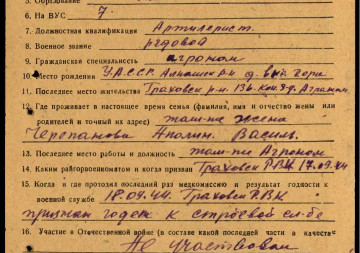 5. Образование
6. На ВУС 7.
7. Должностная квалификация Артилерист.
8. Военное звание рядовой
9. Гражданская специальность агроном
10. Место рождения УАССР Алнашск р-н д. Вык гора
11. Последнее место жительства Граховск р-н
12. Где проживает в настоящее время семья (фамилия, имя и отчество жены или
родителей и точный их адрес) там-же жена
Черепанова Аполин. Василь.
13. Последнее место работы и должность там-же Агроном
14. Каким райгорвоенкоматом и когда призван Граховск РВК 17.09.44
15. Когда и где проходил последний раз медкомиссию и результат годности к
военной службе 18.09.44. Граховск РВК
признан годен к строевой сл-бе
16. Участие в Отечественной войне (в составе какой последней части в качестве
Не участвовал